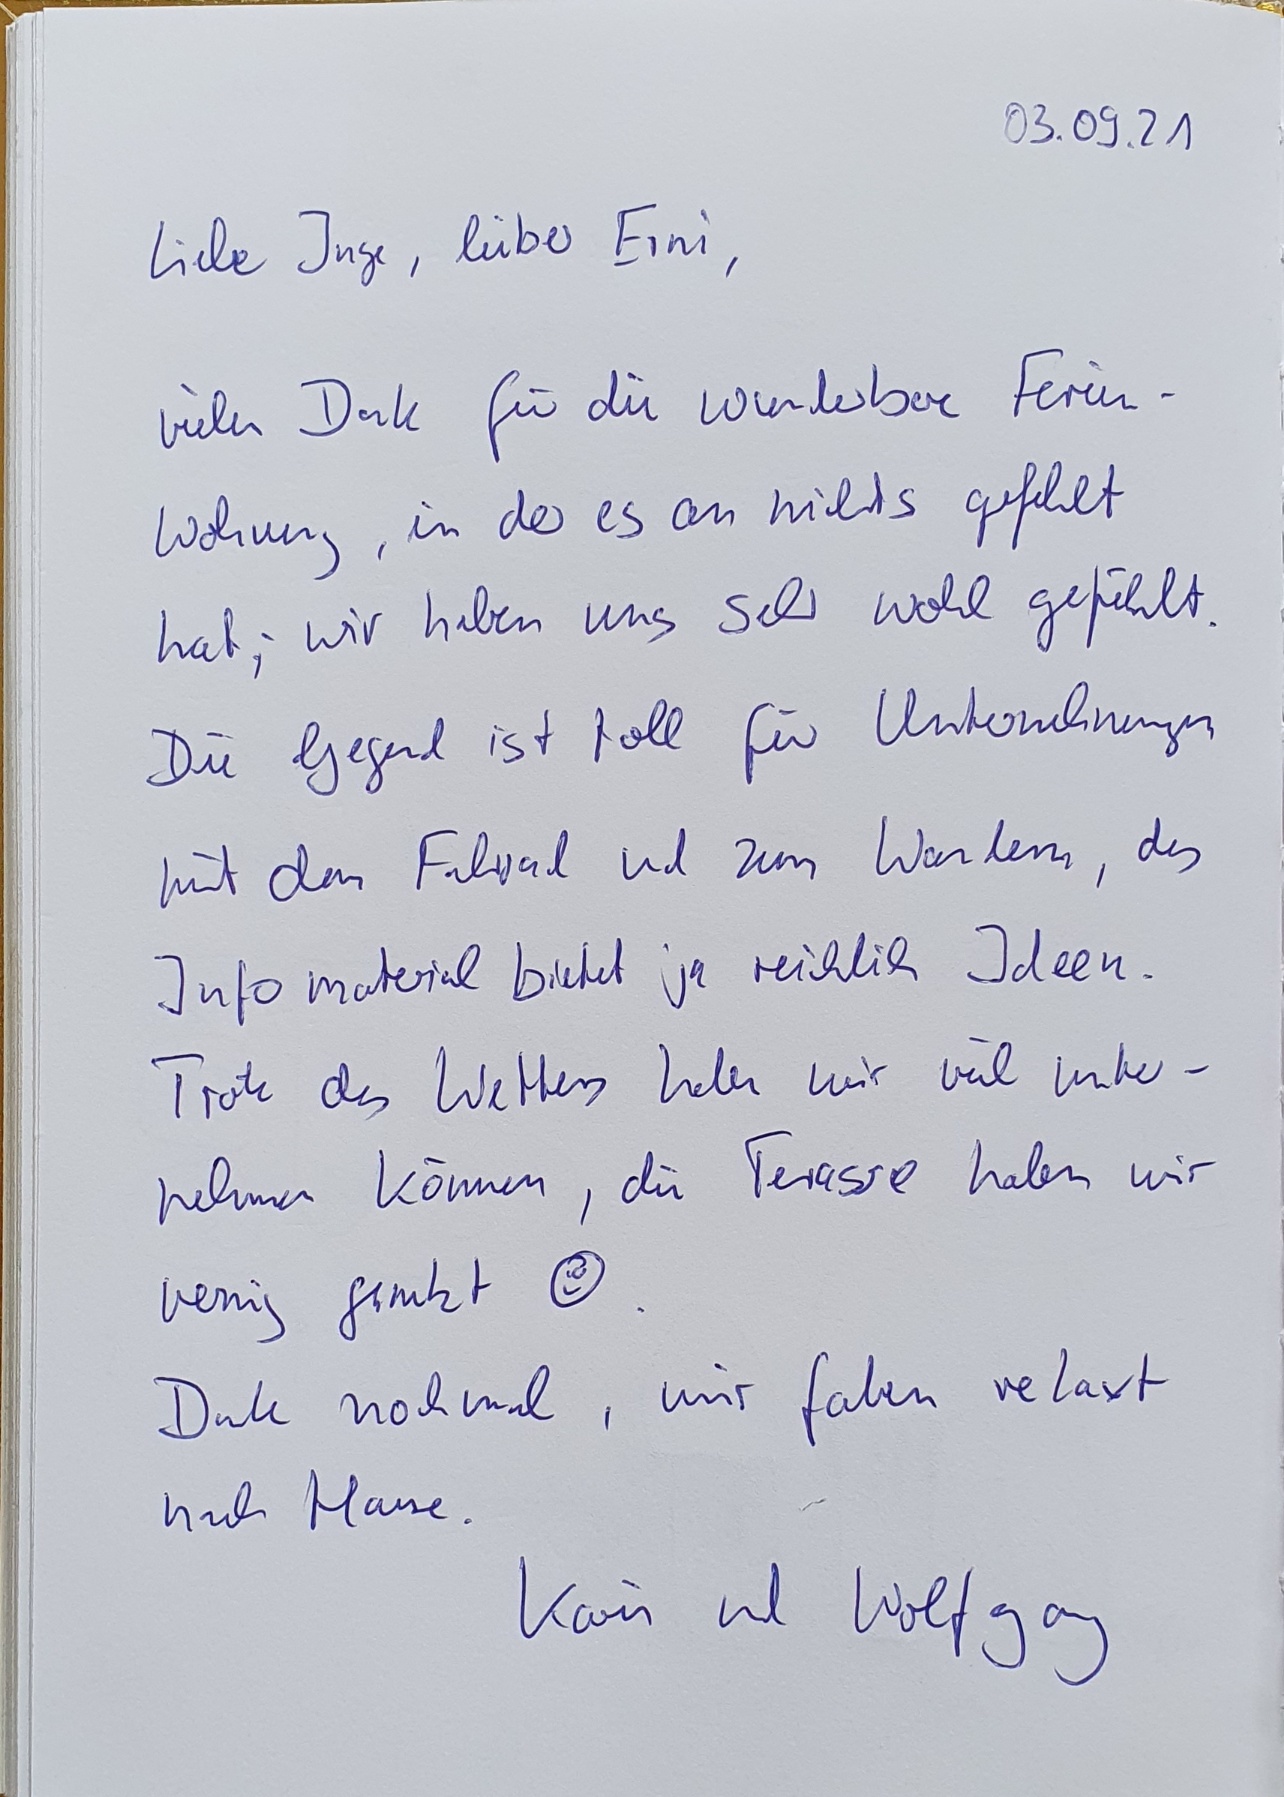 03.09.21
Liebe Inge, lieber Erni,
vielen Dank für die wunderbare Ferien-
wohnung, in der es an nichts gefehlt
hat; wir haben uns sehr wohl gefühlt.
Die Gegend ist toll für Unternehmungen
mit dem Fahrrad und zum Wandern, das
Infomaterial bietet ja reichlich Ideen.
Trotz des Wetters haben wir viel unter-
nehmen können, die Terasse haben wir
wenig genutzt ☺.
Danke nochmal, wir fahren relaxt
nach Hause.
Karin und Wolfgang